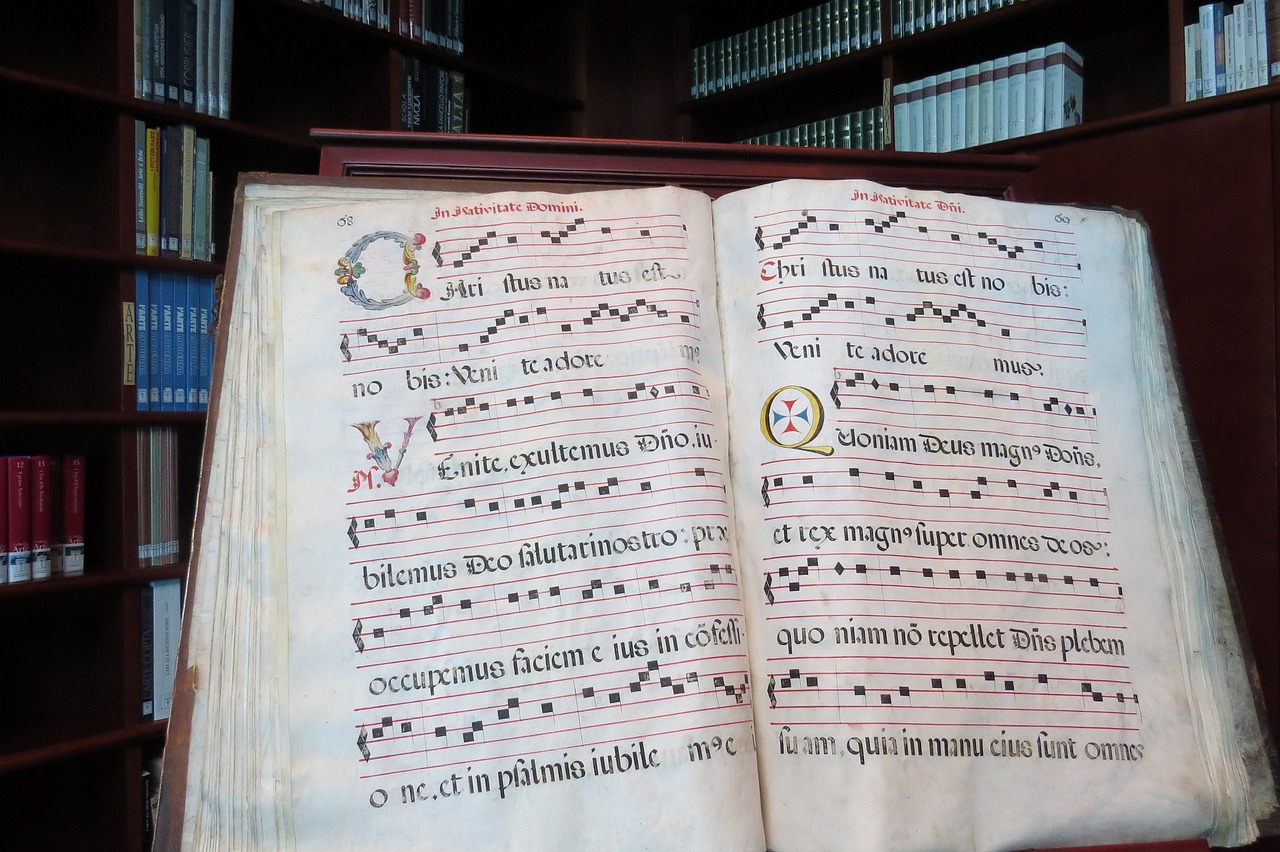 68
In Nativitate Domini.
CHri stus na tus est
no bis: Veni te adore mꝰ
Ps. VEnite, exultemus Dño, iu-
bilemus Deo salutarinostro: præ
occupemus faciem e ius in cōfessi-
o ne, et in psalmis iubile mꝰ e
69
In Nativitate Dñi.
Chri stus na tus est no bis:
Veni te adore mus.
Quoniam Deus magnꝰ Doñs,
et rex magnꝰ super omnes deos:
quo niam nō repellet Dñs plebem
suam, quia in manu eius sunt omnes
ARTE
L'ARTE
L'ARTE
L'ARTE
L'ARTE
L'ARTE
12
13